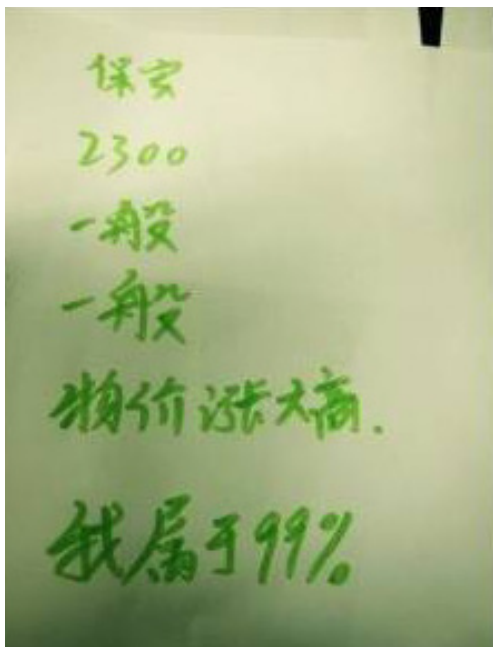 保安
2300
一般
一般
物价涨太高.
我属于99%